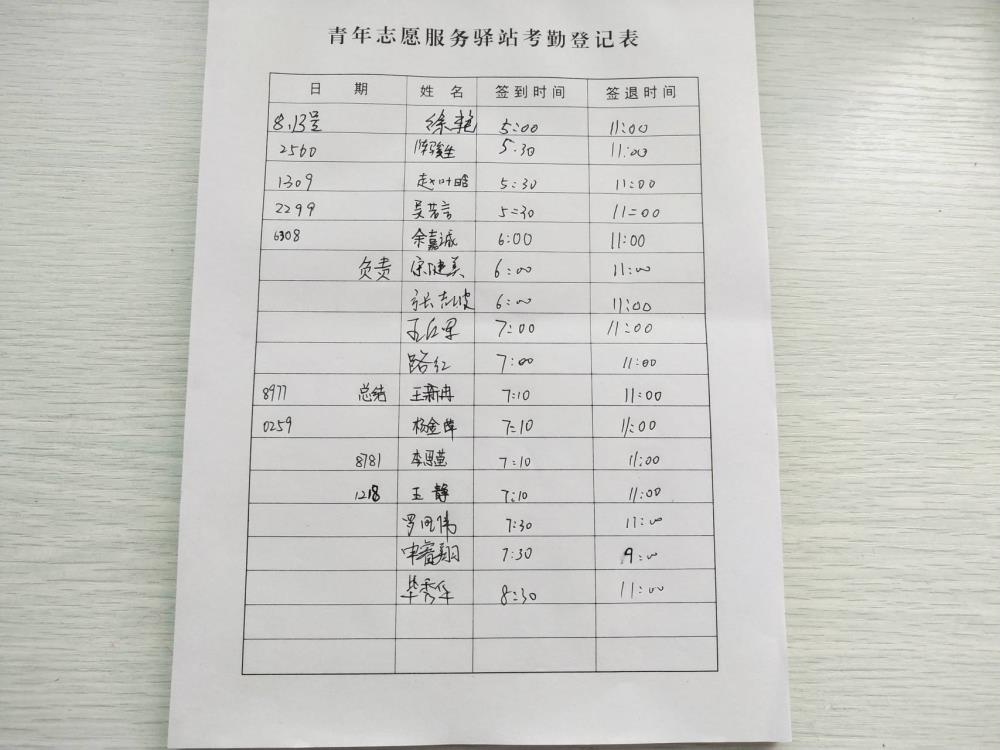 青年志愿服务驿站考勤登记表
日期 姓名 签到时间 签退时间
8.13号 徐艳 5:00 11:00
2560 陈骏生 5:30 11:00
1309 赵叶晗 5:30 11:00
2299 吴若言 5:30 11:00
6308 余嘉诚 6:00 11:00
负责 宋健美 6:00 11:00
张志波 6:00 11:00
7:00 11:00
路红 7:00 11:00
8977 总结 王新冉 7:10 11:00
0259 杨金萍 7:10 11:00
8781 李思莹 7:10 11:00
1218 王静 7:10 11:00
罗同伟 7:30 11:00
申睿翔 7:30 9:00
毕秀华 8:30 11:00